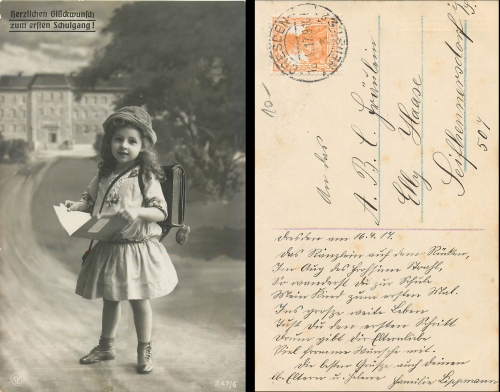 Herzlichen Glückwunsch
zum ersten Schulgang!
247/6
DRESDEN
An das
A. B. C. Fräulein
Elly Haase
Seifhennersdorf i/S.
507
Dresden am 10.4.17.
Das Ränzlein auf dem Rücken,
Im Aug des Frohsinns Strahl,
So wanderst du zur Schule
Mein Kind zum ersten Mal.
Ins große weite Leben
Tust Du den ersten Schritt
Drum gibt die Elternliebe
Viel fromme Wünsche mit.
Die besten Grüße auch deinen
lb. Eltern u.
Familie Lippmann